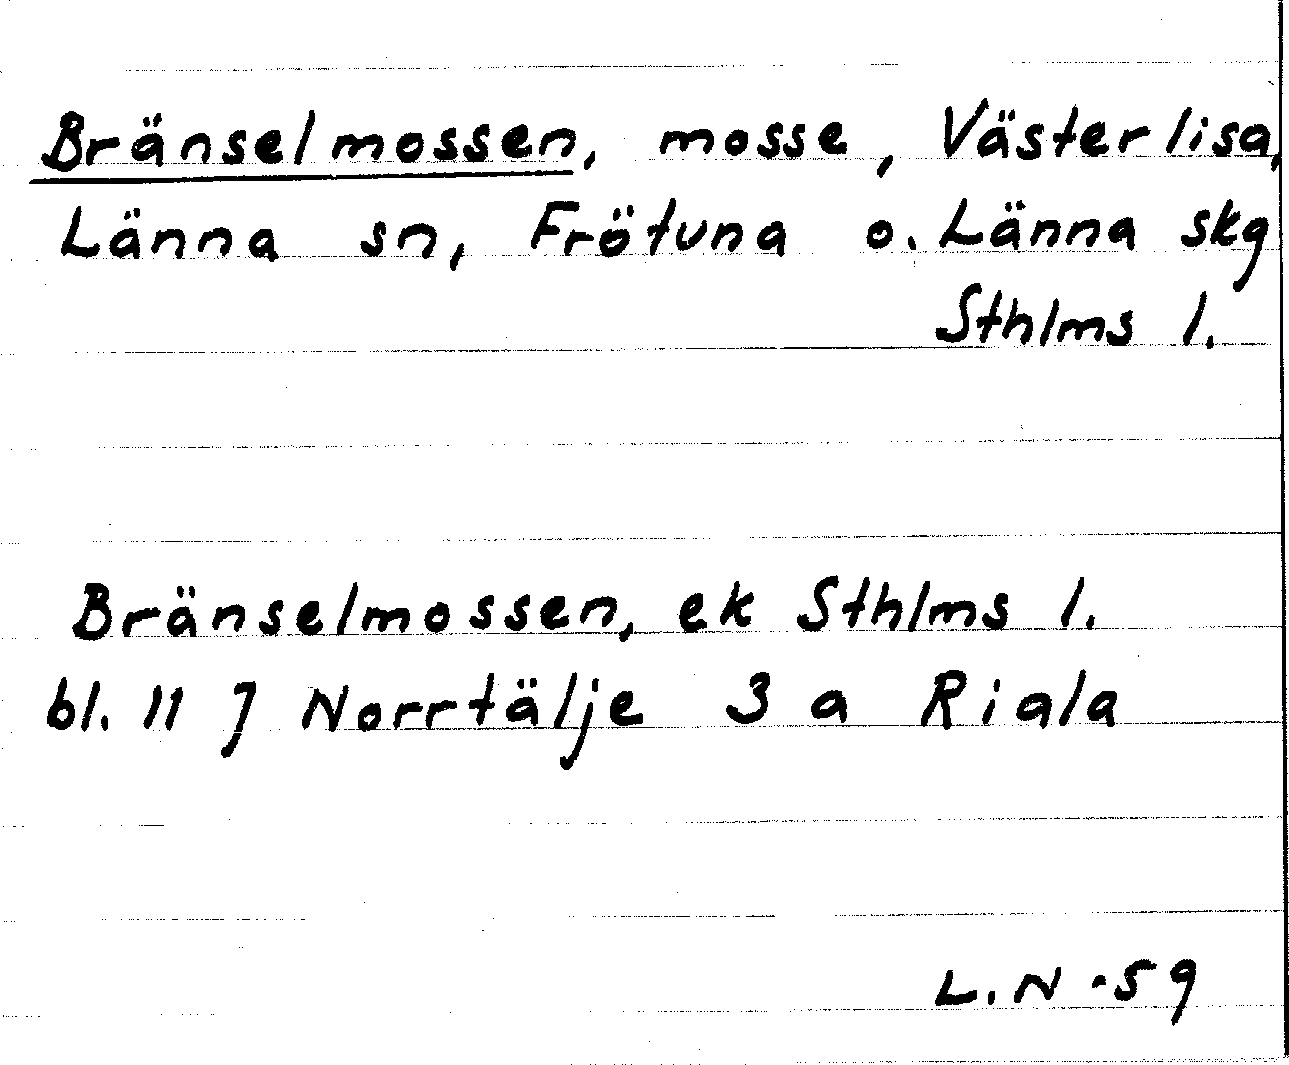 Bränselmossen, mosse, Västerlisa,
Länna sn, Frötuna o. Länna skg
Sthlms l.
Bränselmossen, ek Sthlms l.
bl. 11 J Norrtälje 3 a Riala
L.N -59